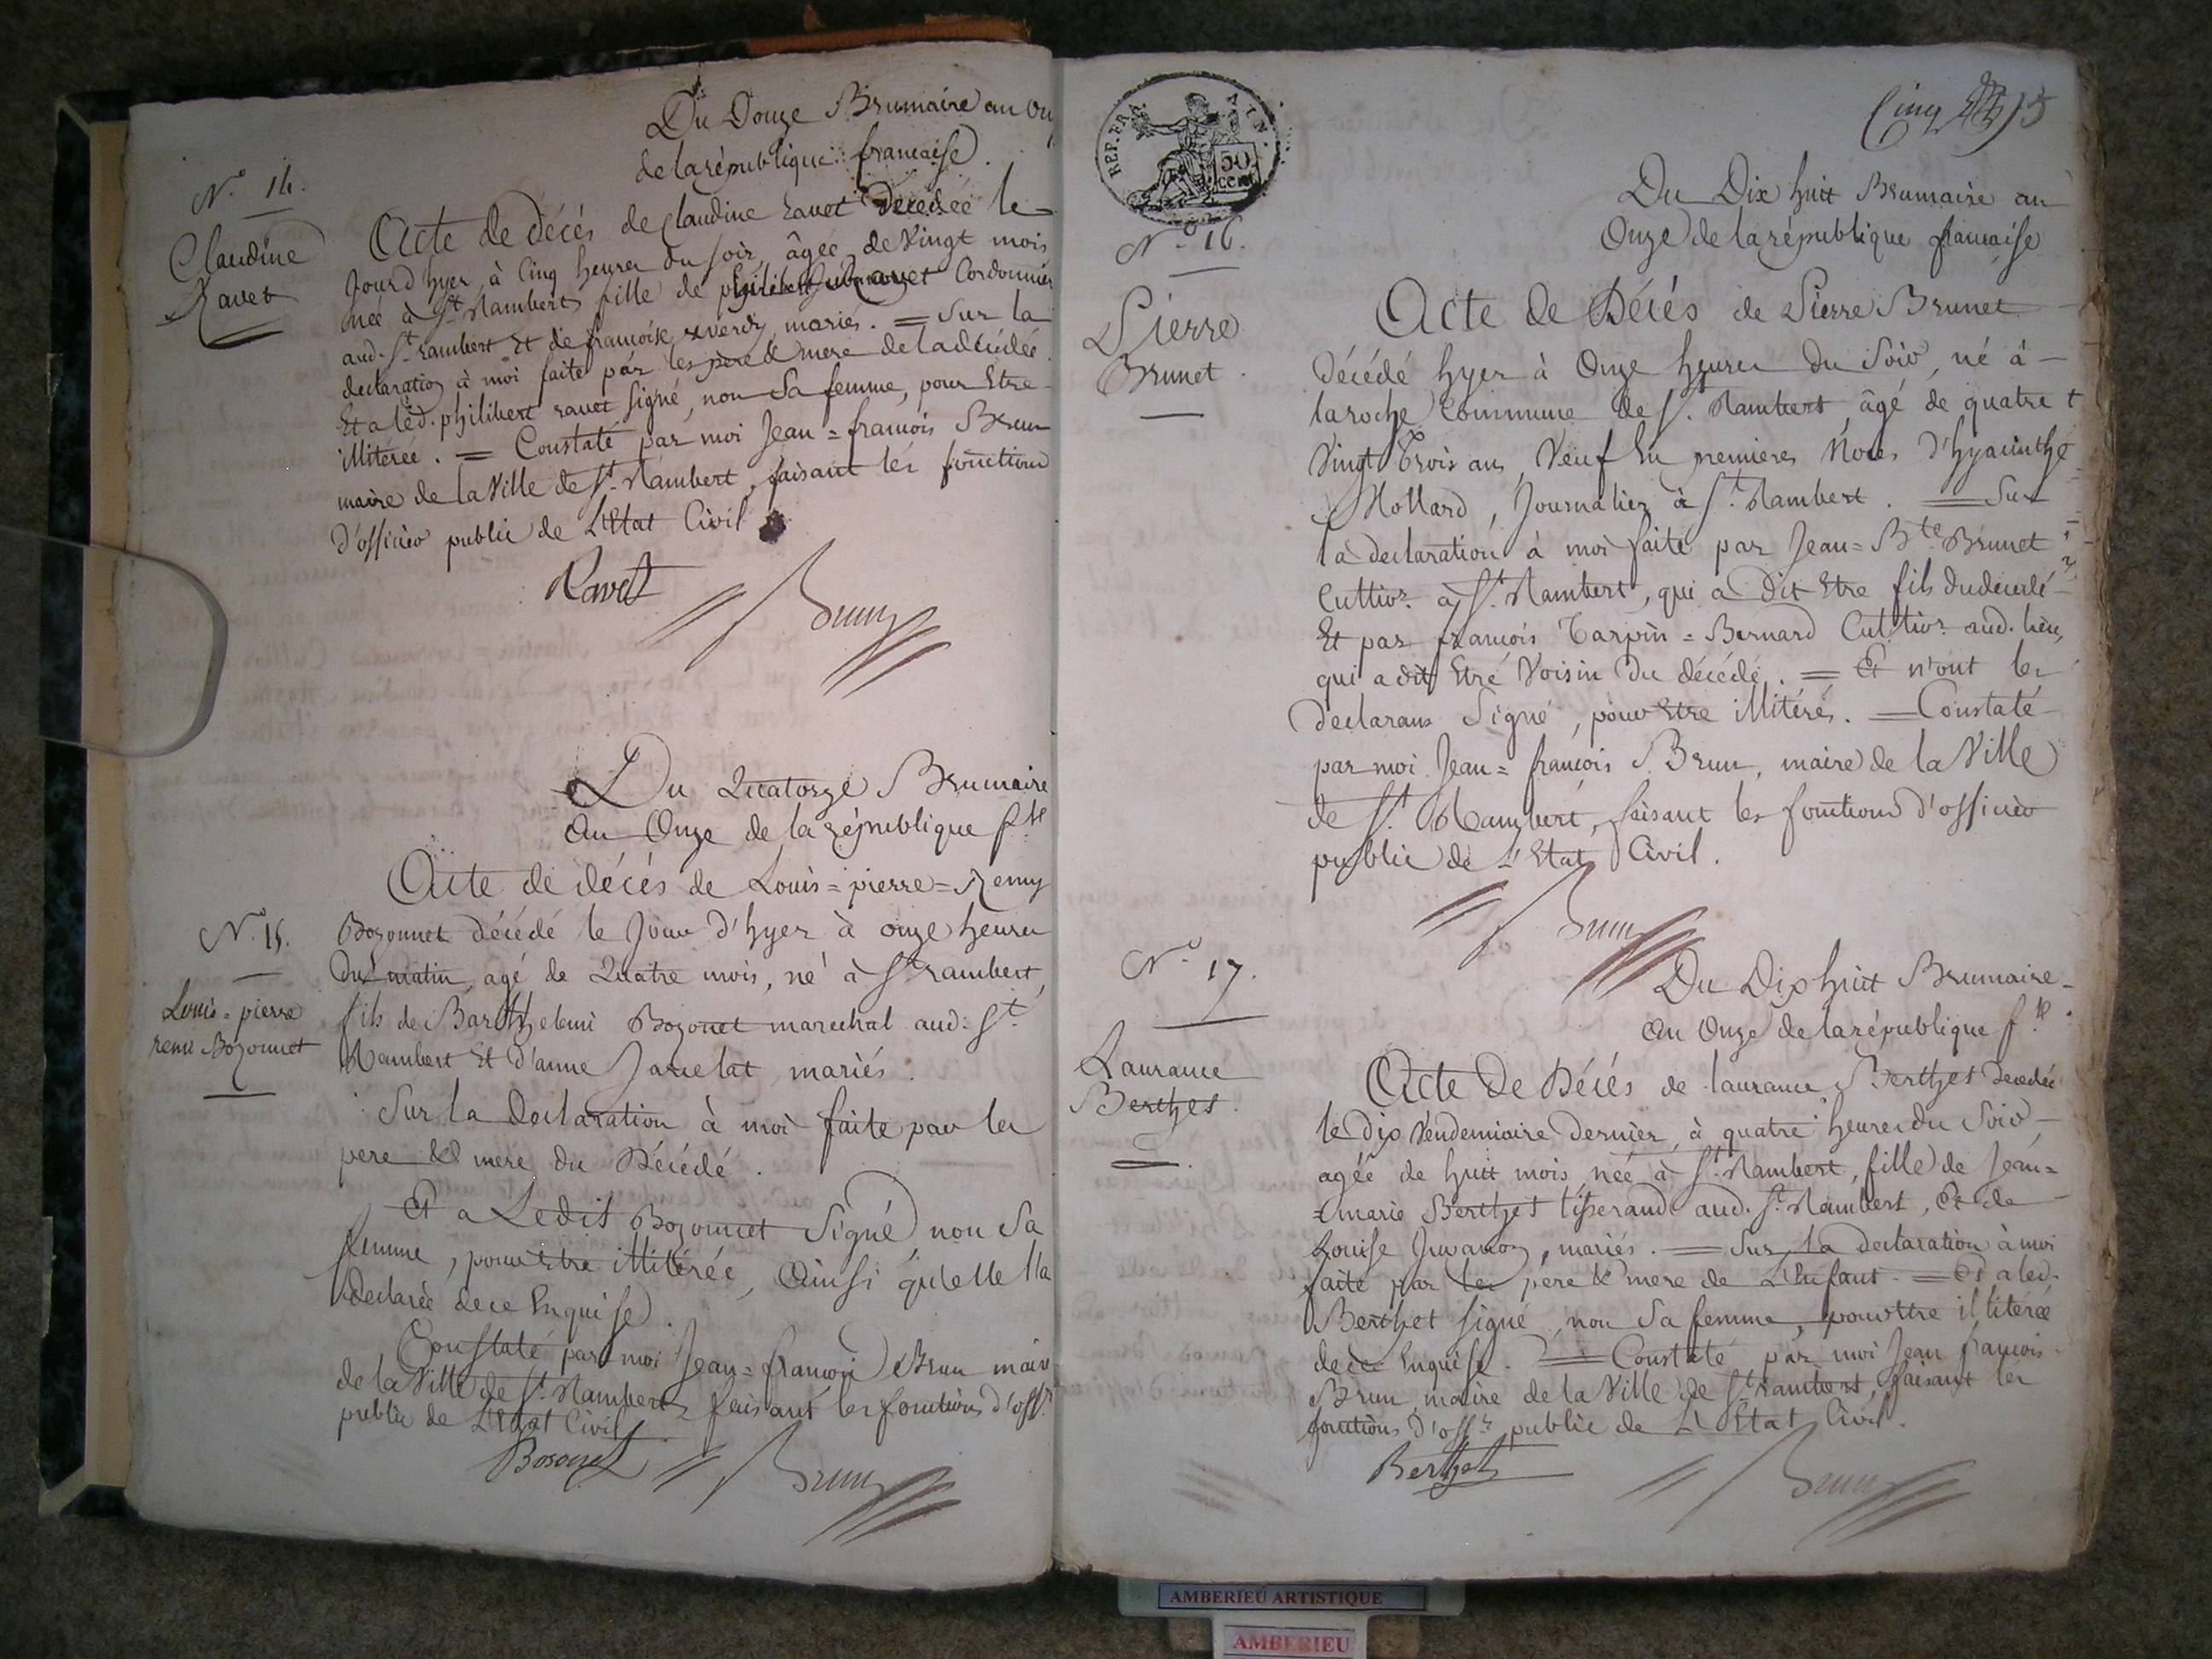 Du Douze Brumaire an On
de la république française.
N.º 14.
Claudine
Ravet
Acte de décés de Claudine ravet décédée le
Jour d'hyer à Cinq heures du soir, âgée de Vingt mois
née à St. Rambert, fille de philibert ravet Cordonnier
aud. St. rambert Et de françoise mariés. = Sur la
declaration à moi faite par les père & mere de la décédée.
Et a led. philibert ravet signé, non Sa femme, pour Etre
illitérée. = Constaté par moi Jean = francois Brun
maire de la Ville de St. Rambert, faisant les fonctions
d'officier public de L'Etat Civil
Ravet
Brun
Du Quatorze Brumaire
An Onze de la république f.se
N.º 15.
Louis = pierre
remi Bozonnet
Acte de décés de Louis = pierre = Remy
Bozonnet décédé le Jour d'hyer à onze heures
du matin, agé de Quatre mois, né à St. rambert,
fils de Barthelemi Bozonet marechal aud: St.
Rambert Et d'anne Jacelat mariés.
Sur la Declaration à moi faite par les
pere & mere du Décédé.
Et a Ledit Bozonnet Signé non Sa
femme, pour Etre illitérée, Ainsi qu'elle l'a
declarée de ce Enquise.
Constaté par moi Jean = francois Brun maire
de la Ville de St. Rambert, faisant les fonctions d'offr.
public de L'Etat Civil
Bozonet
Brun
REP. FRA. AIN.
50
cent
Cinq 5
Du Dix huit Brumaire an
Onze de la république française
N.º 16.
Pierre
Brunet.
Acte de Décés de Pierre Brunet
Décédé hyer à Onze heures du Soir, né à
la roche Commune de St. Rambert, âgé de quatre
Vingt Trois ans, Veuf En premieres Noces d'hyacinthe
Mollard, Journalier à St. Rambert. = Sur
la declaration à moi faite par Jean = Bte. Brunet
Cultivr. à St. Rambert, qui a Dit Etre fils du decedé
Et par francois Tarpin = Bernard Cultivr. aud. lieu,
qui a dit Etre Voisin du décédé. = Et n'ont les
declarans Signé, pour Etre illitérés. = Constaté
par moi Jean = francois Brun, maire de la Ville
de St. Rambert, faisant les fonctions d'officier
public de L'Etat Civil.
Brun
Du Dix huit Brumaire
An Onze de la république f.se
N.º 17.
Laurance
Berthet.
Acte de Décés de laurance Berthet decedée
le dix Vendemiaire Dernier, à quatre heures du Soir
agée de huit mois, née à St. Rambert, fille de Jean =
= marie Berthet tisserand aud. St. Rambert, & de
Louise Juvanon, mariés. = Sur la declaration à moi
faite par les père & mere de L'Enfant. = Et a led.
Berthet signé, non Sa femme, pour Etre illitérée
de ce Enquise. = Constaté par moi Jean francois
Brun maire de la Ville de St. rambert, faisant les
fonctions d'offr. public de L'Etat Civil.
Berthet
Brun
AMBERIEU ARTISTIQUE
AMBERIEU